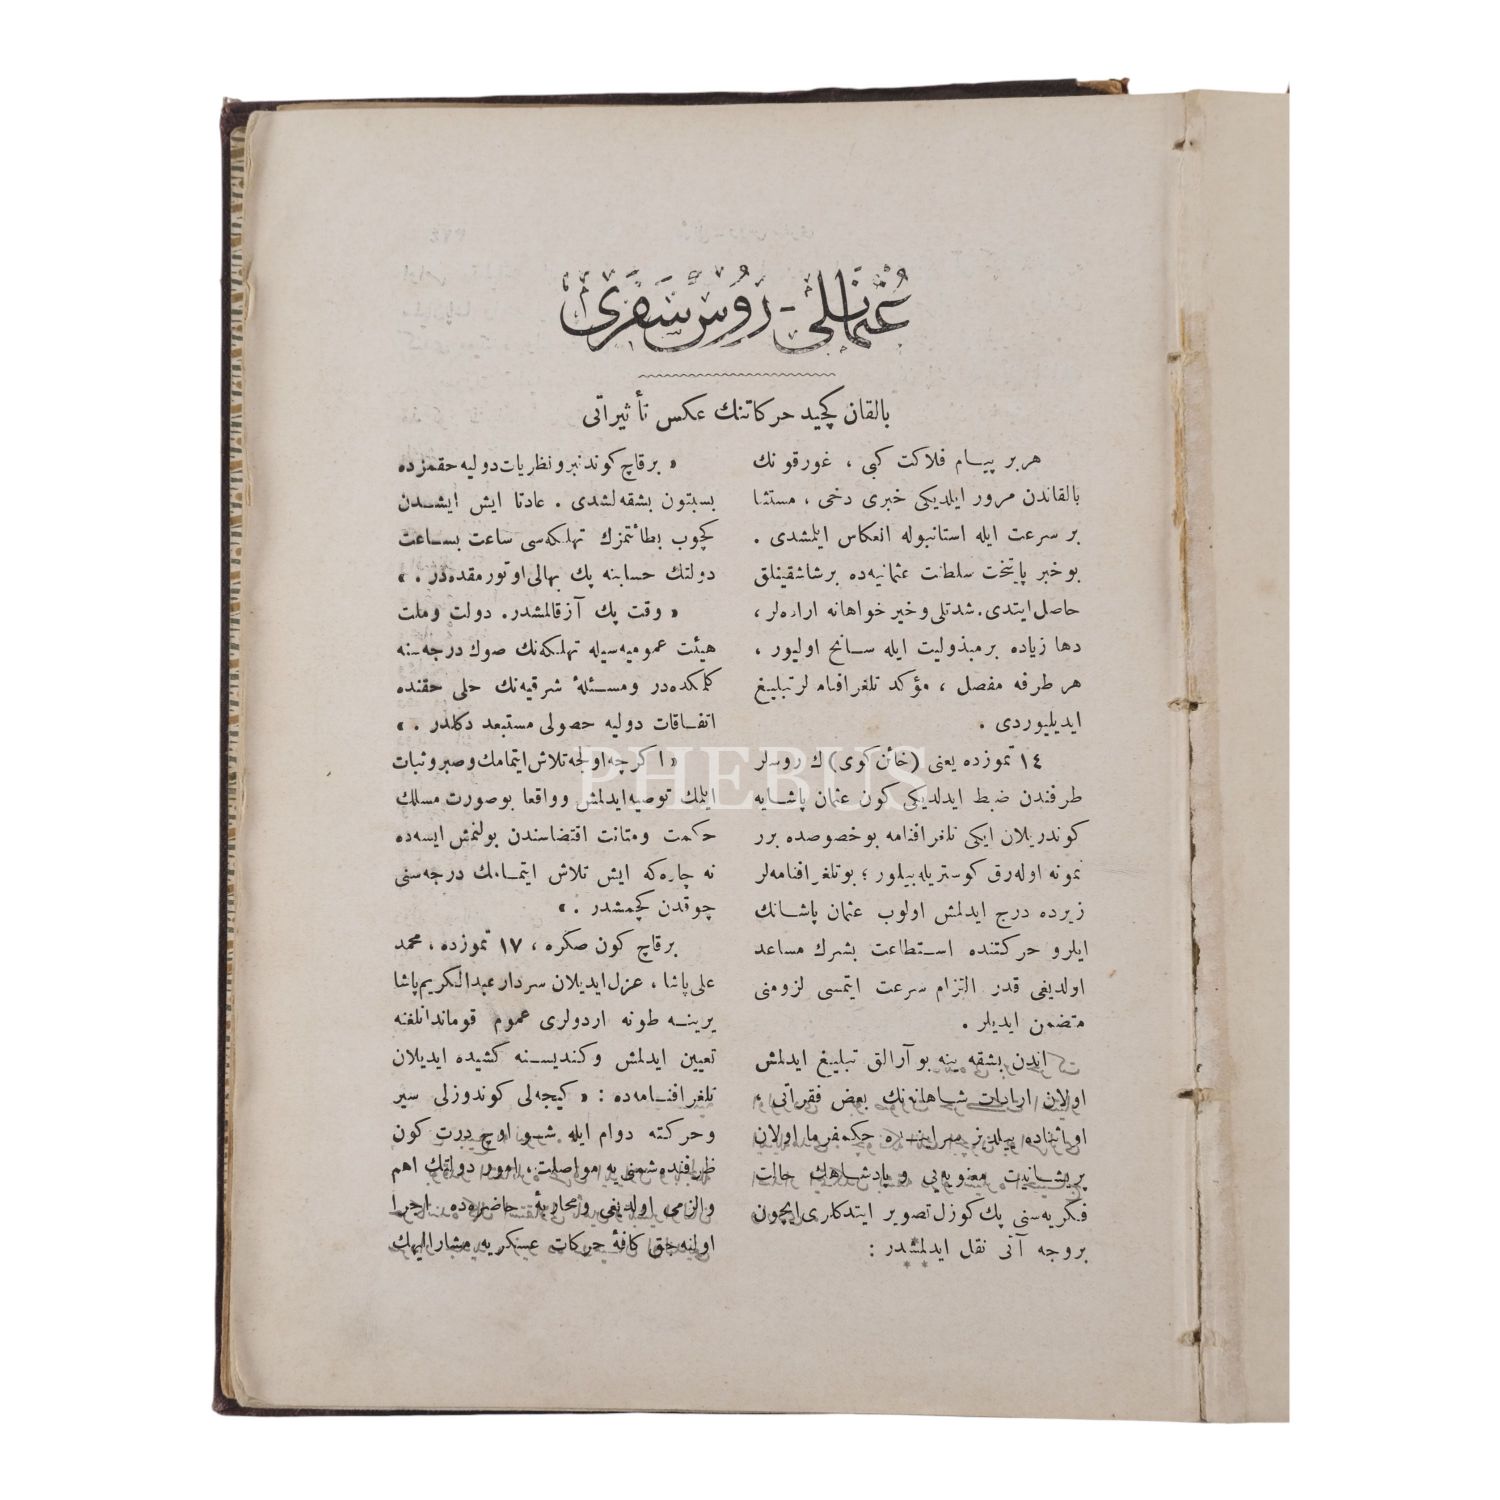 عُثمانلى - رُوس سَفَرى
بالقان كچيد حركاتنك عكس تأثيراتى
هر بر پيام فلاكت كبى ، غورقونك
بالقاندن مرور ايلديكى خبرى دخى ، مستثنا
بر سرعت ايله استانبوله انعكاس ايلمشدى .
بو خبر پايتخت سلطنت عثمانيه‌ده بر شاشقينلق
حاصل ايتدى . شدتلى و خير خواهانه اراده‌لر ،
دها زياده بر مبذوليت ايله سانح اوليور ،
هر طرفه مفصل ، مؤكد تلغرافنامه‌لر تبليغ
ايديليوردى .
١٤ تموزده يعنى (خائن كوى) ك روسلر
طرفندن ضبط ايدلديكى كون عثمان پاشايه
كوندريلان ايكى تلغرافنامه بو خصوصده برر
نمونه اوله‌رق كوستريله‌بيلور ؛ بو تلغرافنامه‌لر
زيرده درج ايدلمش اولوب عثمان پاشانك
ايلرو حركتنده استطاعت بشرك مساعد
اولديغى قدر التزام سرعت ايتمسى لزومنى
متضمن ايديلر .
اندن بشقه ينه بو آرالق تبليغ ايدلمش
اولان ارادات شاهانه‌نك بعض فقراتى ،
او اثناده ييلديز سراينده حكمفرما اولان
پريشانيت معنويه‌يى و پادشاهك حالت
فكريه‌سنى پك كوزل تصوير ايتدكلرى ايچون
بر وجه آتى نقل ايدلمشدر :
« بر قاچ كوندنبرو نظريات دوليه حقمزده
بسبتون بشقه‌لشدى . عادتا ايش ايشدن
كچوب بطائتمزك تهلكه‌سى ساعت بساعت
دولتك حسابنه پك بهالى اوتورمقده‌در . »
« وقت پك آز قالمشدر . دولت و ملت
هيئت عموميه‌سيله تهلكه‌نك صوك درجه‌سنه
كلمكده‌در و مسئلۀ شرقيه‌نك حلى حقنده
اتفاقات دوليه حصولى مستبعد دكلدر . »
« اكرچه اولجه تلاش ايتمامك و صبر و ثبات
ايلمك توصيه ايدلمش و واقعا بو صورت مسلك
حكمت و متانت اقتضاسندن بولنمش ايسه‌ده
نه چاره‌كه ايش تلاش ايتمامك درجه‌سنى
چوقدن كچمشدر . »
بر قاچ كون صكره ، ١٧ تموزده ، محمد
على پاشا ، عزل ايديلان سردار عبدالكريم پاشا
يرينه طونه اردولرى عموم قوماندانلغنه
تعيين ايدلمش و كنديسنه كشيده ايديلان
تلغرافنامه‌ده : « كيجه‌لى كوندوزلى سير
و حركته دوام ايله شو اوچ درت كون
ظرفنده شمنى‌يه مواصلت ، امور دولتك اهم
و الزمى اولديغى و محاربۀ حاضره‌ده اجرا
اولنه‌جق كافۀ حركات عسكريه مشاراليهك
PHEBUS